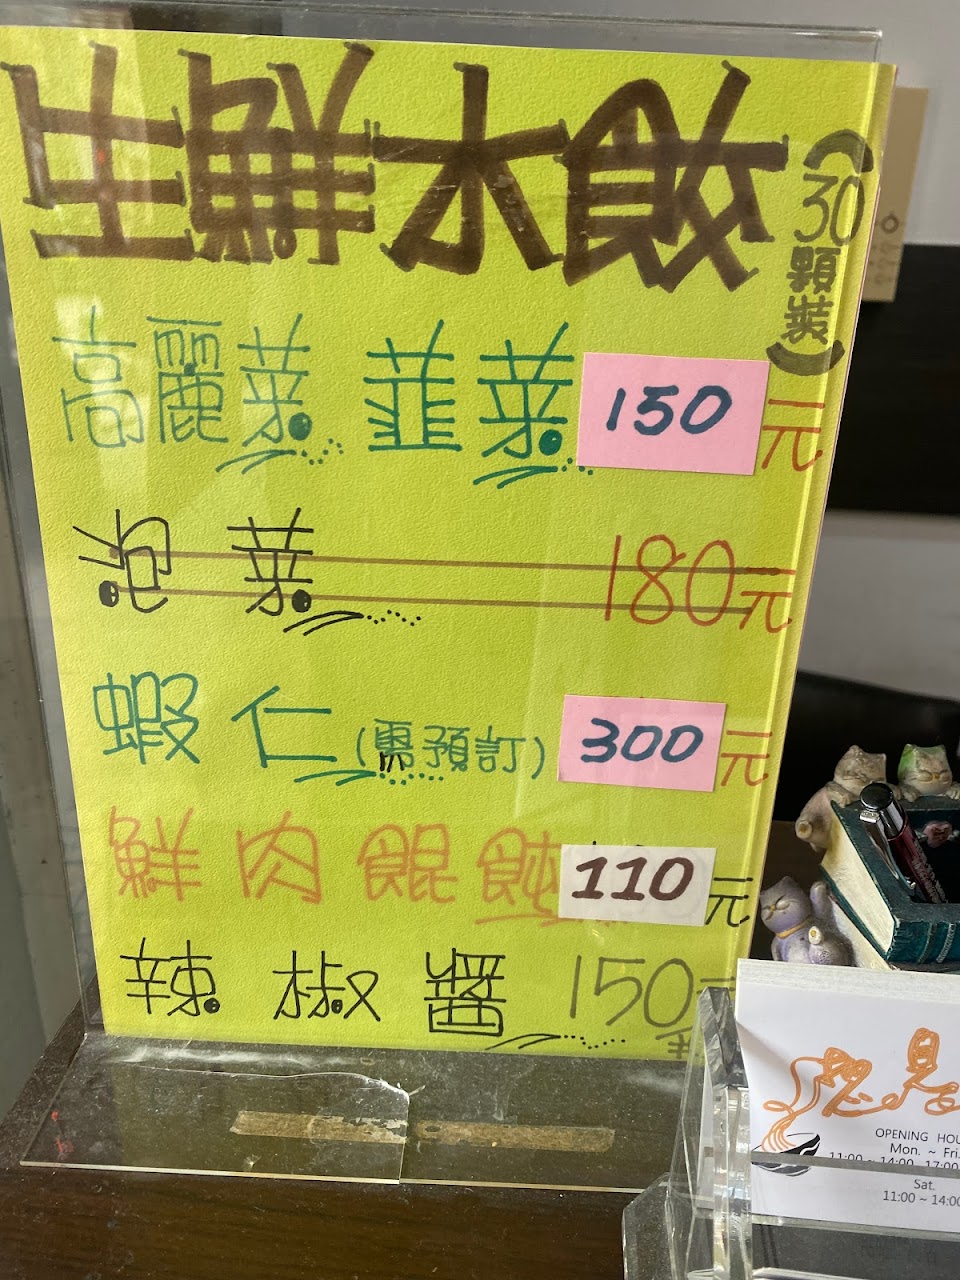 生鮮水餃(30顆裝)
高麗菜 韮菜 150元
泡菜 180元
蝦仁(需預訂) 300元
鮮肉餛飩 110元
辣椒醬 150元
OPENING HOU
Mon. ~ Fri.
11:00 ~ 14:00 17:00
Sat.
11:00 ~ 14:00